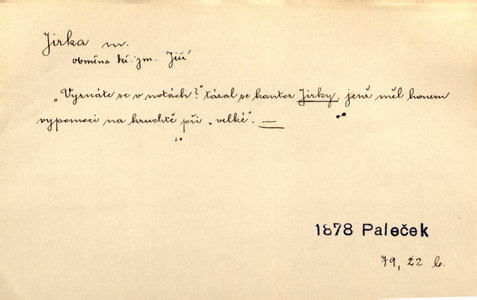 Jirka m.
obměna kř. jm. Jiří
„Vyznáte se v notách?" tázal se kantor Jirky, jenž měl honem
vypomoci na kruchtě při „velké". —
1878 Paleček
79, 22 b.